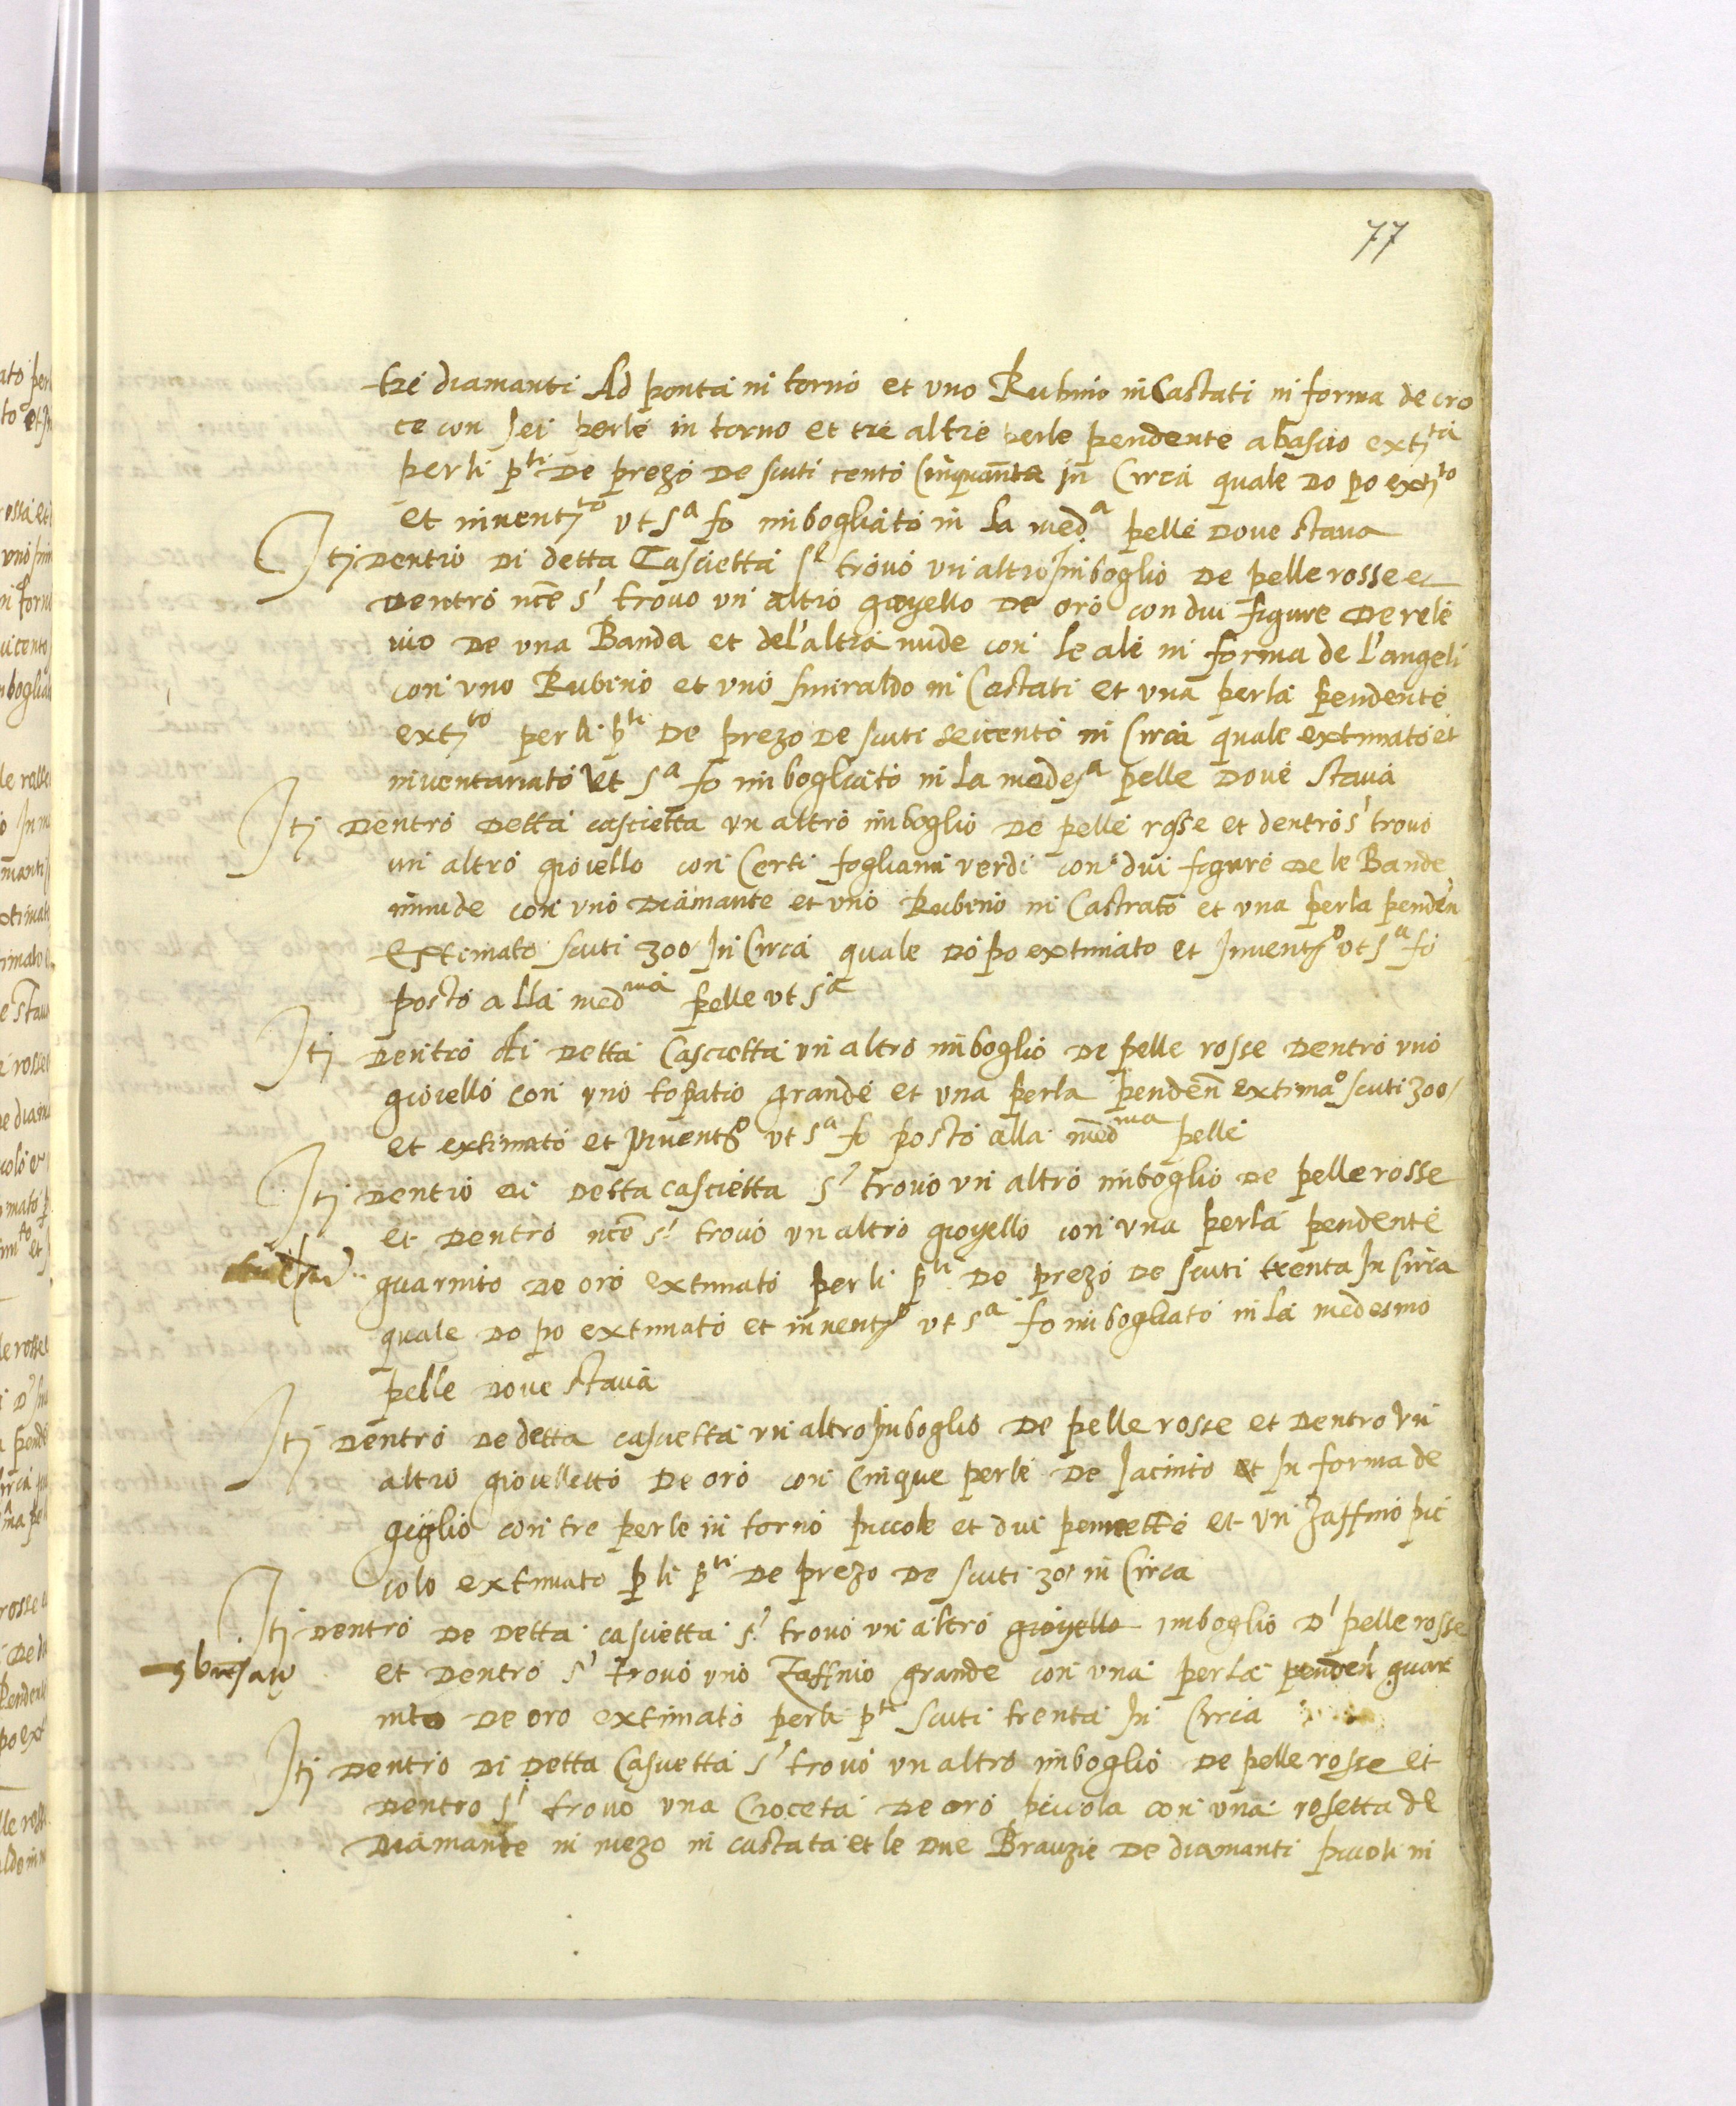 77
tre diamanti Ad ponta in torno et uno Rubino in Castati in forma de cro
ce con sei perle in torno et tre altre perle pendente abascio ext^ta
per li p^ti De prezo De scuti cento Cinquanta in Circa quale Do po ext^to
et invent^to ut s^a fo imbogliato in la med^a pelle Dove stava
Itj Dentro Di detta Cascietta s^e trovo un altro Imboglio De pelle rosse et
Dentro nce s' trovo un altro gioyello De oro con dui figure De rele
vio De una Banda et del'altra nude con le ale in forma de l'angeli
con uno Rubino et uno smiraldo in Castati et una perla pendente
ext^to per li p^ti De prezo De scuti seicento in Circa quale extimato et
inventariato Ut s^a fo imbogliato in la medes^a pelle Dove stava
Itj Dentro Detta cascietta un altro imboglio De pelle rosse et dentro s' trovo
un altro gioiello con Certi fogliami verdi con dui figure De le Bande
innude con uno Diamante et uno Rubino in Castrato et una perla penden
Extimato scuti 300 In Circa quale Do po extimato et Invent^o ut s^a fo
posto alla med^ma pelle ut s^a
Itj Dentro di Detta Cascietta un altro imboglio De pelle rosse Dentro uno
gioiello con uno topatio grande et una perla penden extima^o scuti 300
et extimato et invent^o ut s^a fo posto alla med^ma pelle
Itj Dentro di Detta cascietta s' trovo un altro imboglio De pelle rosse
et Dentro nce s' trovo un altro gioyello con una perla pendente
guarnito De oro extimato per li p^ti De prezo De scuti trenta In circa
quale Do po extimato et invent^o ut s^a fo imbogliato in la medesmo
pelle Dove stava
Itj Dentro De detta cascietta un altro Imboglio De pelle rosse et Dentro un
altro gioielletto De oro con Cinque perle De Jacinto et In forma de
giglio con tre perle in torno piccole et dui pennette et un Zaffino pic
colo extimato p li p^ti De prezo De scuti 30 in Circa
Itj Dentro De Detta cascietta s' trovo un altro gioyello imboglio D' pelle rosse
et Dentro s' trovo uno Zaffino grande con una perla penden guar
nito De oro extimato per li p^ti scuti trenta In Circa
Itj Dentro Di Detta Cascietta s' trovo un altro imboglio De pelle rosse et
Dentro s' trovo una Croceta De oro piccola con una rosetta de
Diamante in mezo in castata et le Due Brauzie De diamanti piccoli in